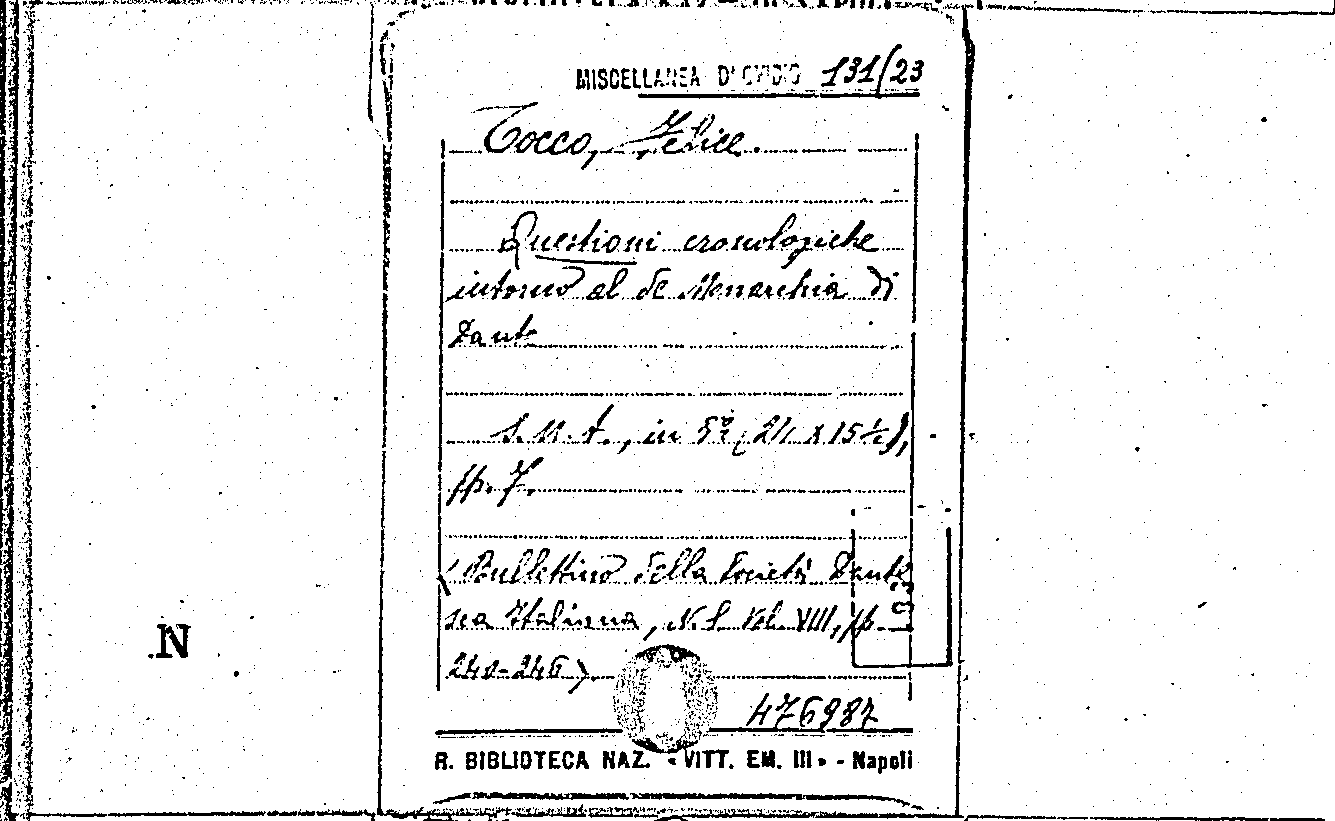 MISCELLANEA D'OVIDIO 131/23
Tocco, Felice.
Questioni cronologiche
intorno al de Monarchia di
Dante
S. n. t., in 8º (24 x 15½),
pp. 7.
(Bullettino della Società Dante
sca Italiana, N. S. Vol. VIII, pp.
240-246).
476987
R. BIBLIOTECA NAZ. «VITT. EM. III» - Napoli
N